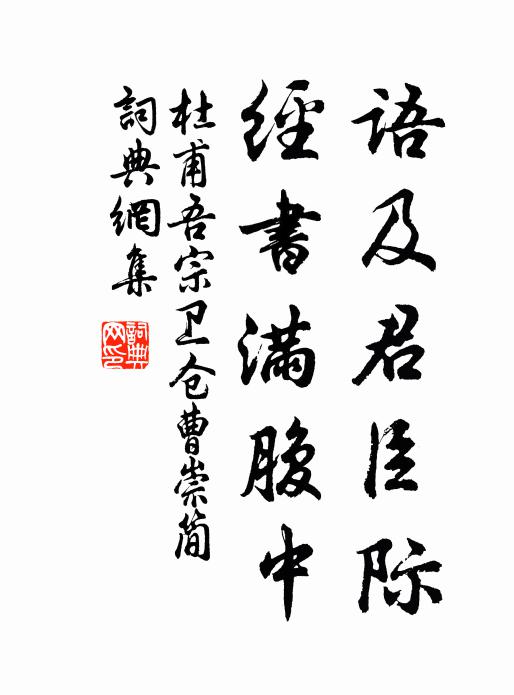 語及君臣际
經書滿腹中
杜甫吾宗卫仓曹崇简
詞典網集
詞典网印